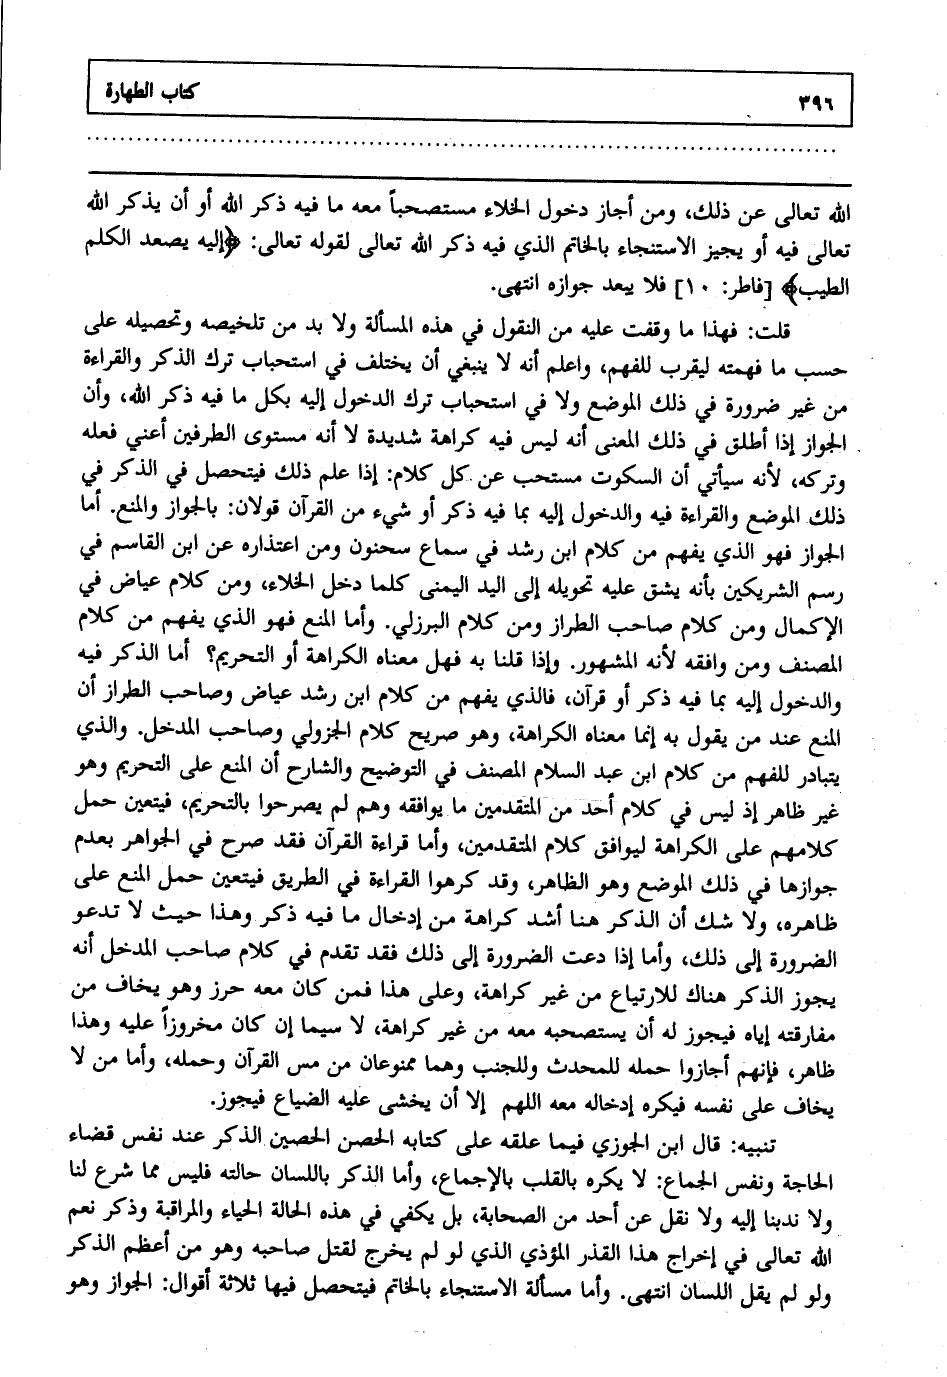 ٣٩٦ كتاب الطهارة
الله تعالى عن ذلك، ومن أجاز دخول الخلاء مستصحباً معه ما فيه ذكر الله أو أن يذكر الله
تعالى فيه أو يجيز الاستنجاء بالخاتم الذي فيه ذكر الله تعالى لقوله تعالى: ﴿إليه يصعد الكلم
الطيب﴾ [فاطر: ١٠] فلا يبعد جوازه انتهى.
قلت: فهذا ما وقفت عليه من النقول في هذه المسألة ولا بد من تلخيصه وتحصيله على
حسب ما فهمته ليقرب للفهم، واعلم أنه لا ينبغي أن يختلف في استحباب ترك الذكر والقراءة
من غير ضرورة في ذلك الموضع ولا في استحباب ترك الدخول إليه بكل ما فيه ذكر الله، وأن
الجواز إذا أطلق في ذلك المعنى أنه ليس فيه كراهة شديدة لا أنه مستوى الطرفين أعني فعله
وتركه، لأنه سيأتي أن السكوت مستحب عن كل كلام: إذا علم ذلك فيتحصل في الذكر في
ذلك الموضع والقراءة فيه والدخول إليه بما فيه ذكر أو شيء من القرآن قولان: بالجواز والمنع. أما
الجواز فهو الذي يفهم من كلام ابن رشد في سماع سحنون ومن اعتذاره عن ابن القاسم في
رسم الشريكين بأنه يشق عليه تحويله إلى اليد اليمنى كلما دخل الخلاء، ومن كلام عياض في
الإكمال ومن كلام صاحب الطراز ومن كلام البرزلي. وأما المنع فهو الذي يفهم من كلام
المصنف ومن وافقه لأنه المشهور. وإذا قلنا به فهل معناه الكراهة أو التحريم؟ أما الذكر فيه
والدخول إليه بما فيه ذكر أو قرآن، فالذي يفهم من كلام ابن رشد عياض وصاحب الطراز أن
المنع عند من يقول به إنما معناه الكراهة، وهو صريح كلام الجزولي وصاحب المدخل. والذي
يتبادر للفهم من كلام ابن عبد السلام المصنف في التوضيح والشارح أن المنع على التحريم وهو
غير ظاهر إذ ليس في كلام أحد من المتقدمين ما يوافقه وهم لم يصرحوا بالتحريم، فيتعين حمل
كلامهم على الكراهة ليوافق كلام المتقدمين، وأما قراءة القرآن فقد صرح في الجواهر بعدم
جوازها في ذلك الموضع وهو الظاهر، وقد كرهوا القراءة في الطريق فيتعين حمل المنع على
ظاهره، ولا شك أن الذكر هنا أشد كراهة من إدخال ما فيه ذكر وهذا حيث لا تدعو
الضرورة إلى ذلك، وأما إذا دعت الضرورة إلى ذلك فقد تقدم في كلام صاحب المدخل أنه
يجوز الذكر هناك للارتياع من غير كراهة، وعلى هذا فمن كان معه حرز وهو يخاف من
مفارقته إياه فيجوز له أن يستصحبه معه من غير كراهة، لا سيما إن كان مخروزاً عليه وهذا
ظاهر، فإنهم أجازوا حمله للمحدث وللجنب وهما ممنوعان من مس القرآن وحمله، وأما من لا
يخاف على نفسه فيكره إدخاله معه اللهم إلا أن يخشى عليه الضياع فيجوز.
تنبيه: قال ابن الجوزي فيما علقه على كتابه الحصن الحصين الذكر عند نفس قضاء
الحاجة ونفس الجماع: لا يكره بالقلب بالإجماع، وأما الذكر باللسان حالته فليس مما شرع لنا
ولا ندبنا إليه ولا نقل عن أحد من الصحابة، بل يكفي في هذه الحالة الحياء والمراقبة وذكر نعم
الله تعالى في إخراج هذا القذر المؤذي الذي لو لم يخرج لقتل صاحبه وهو من أعظم الذكر
ولو لم يقل اللسان انتهى. وأما مسألة الاستنجاء بالخاتم فيتحصل فيها ثلاثة أقوال: الجواز وهو